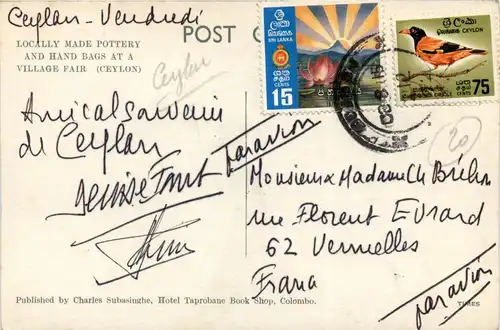 Ceylan - Vendredi
POST C
LOCALLY MADE POTTERY
AND HAND BAGS AT A
VILLAGE FAIR (CEYLON)
Ceylan
ශ්‍රී ලංකා
இலங்கை
SRI LANKA
15
CENTS
ලංකා
இலங்கை
CEYLON
75
CENTS
20
Amical souvenir
de Ceylan
par avion
Monsieur & Madame Ch
rue Florent Evrard
62 Vermelles
France
par avion
Published by Charles Subasinghe, Hotel Taprobane Book Shop, Colombo.
TIMES